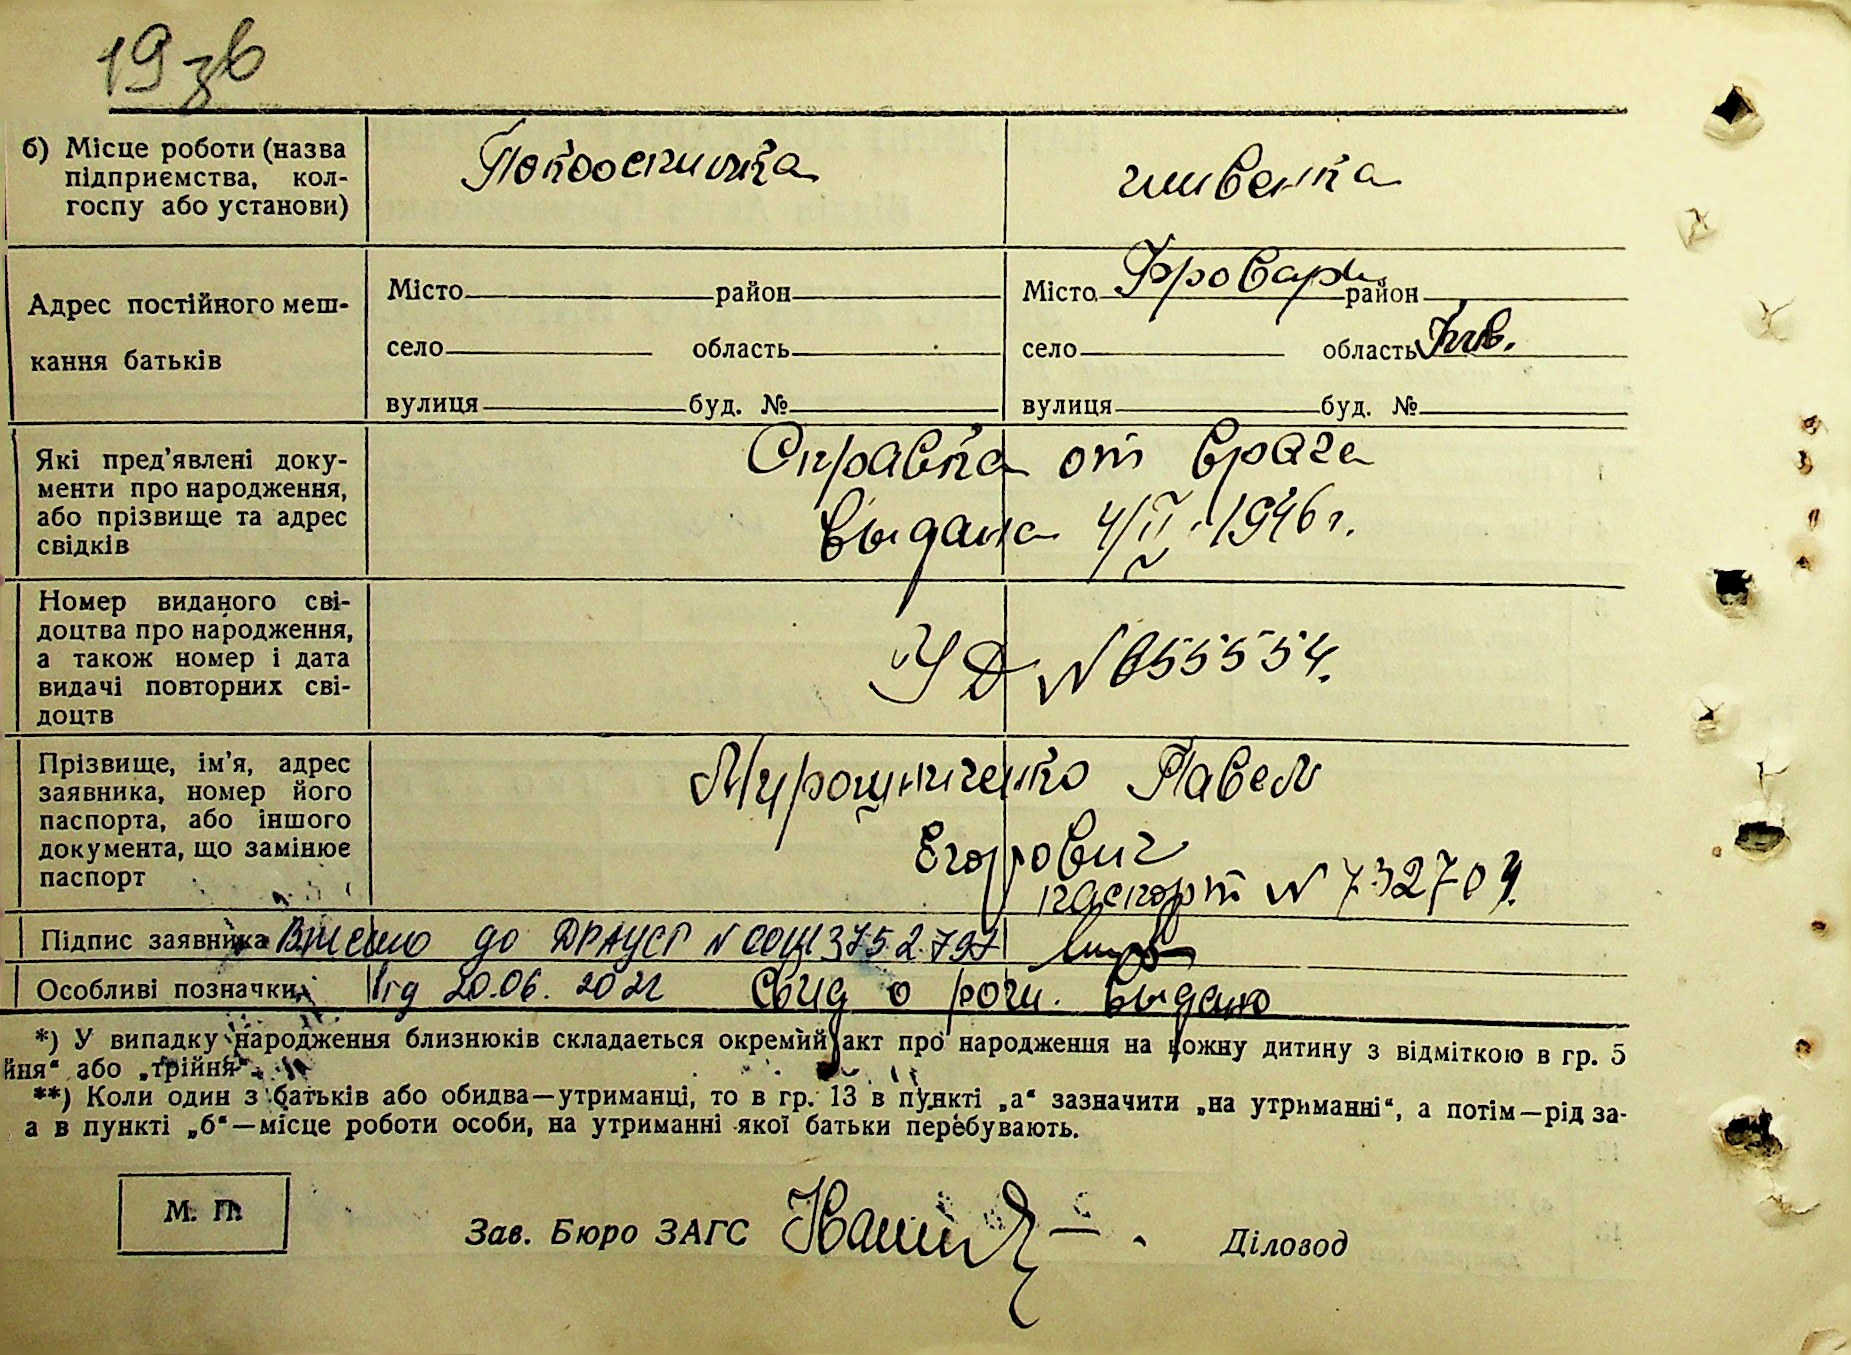 19 зв
б) Місце роботи (назва
підприємства, кол-
госпу або установи)
швейка
Адрес постійного меш-
кання батьків
Місто район
село область
вулиця буд. №
Місто Бровари район
село область Київ.
вулиця буд. №
Які пред’явлені доку-
менти про народження,
або прізвище та адрес
свідків
Справка от врача
выдана 4/IV 1946 г.
Номер виданого сві-
доцтва про народження,
а також номер і дата
видачі повторних сві-
доцтв
УД N 055554.
Прізвище, ім’я, адрес
заявника, номер його
паспорта, або іншого
документа, що замінює
паспорт
Мирошниченко Павел
Егорович
паспорт N 732704.
Підпис заявника Внесено до ДРАЦСГ N
Особливі позначки від 20.06. 2022 Свид о рожд. выдано
*) У випадку народження близнюків складається окремий акт про народження на кожну дитину з відміткою в гр. 5
йня“ або „трійня“.
**) Коли один з батьків або обидва—утриманці, то в гр. 13 в пункті „а“ зазначити „на утриманні“, а потім—рід за-
а в пункті „б“—місце роботи особи, на утриманні якої батьки перебувають.
М. П.
Зав. Бюро ЗАГС
Діловод